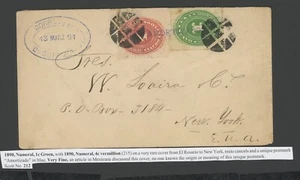 13 MARZ 91
Sres.
W. Loaiza & Co.
P. O. Box - 3189 -
New. York.
E. U. A.
1890, Numeral, 1c Green, with 1890, Numeral, 4c vermilion (215) on a very rare cover from El Rosario to New York, main cancels and a unique postmark
"Amortizado" in blue, Very Fine, an article in Mexicana discussed this cover, no one knows the origin or meaning of this unique postmark
Scott No. 212